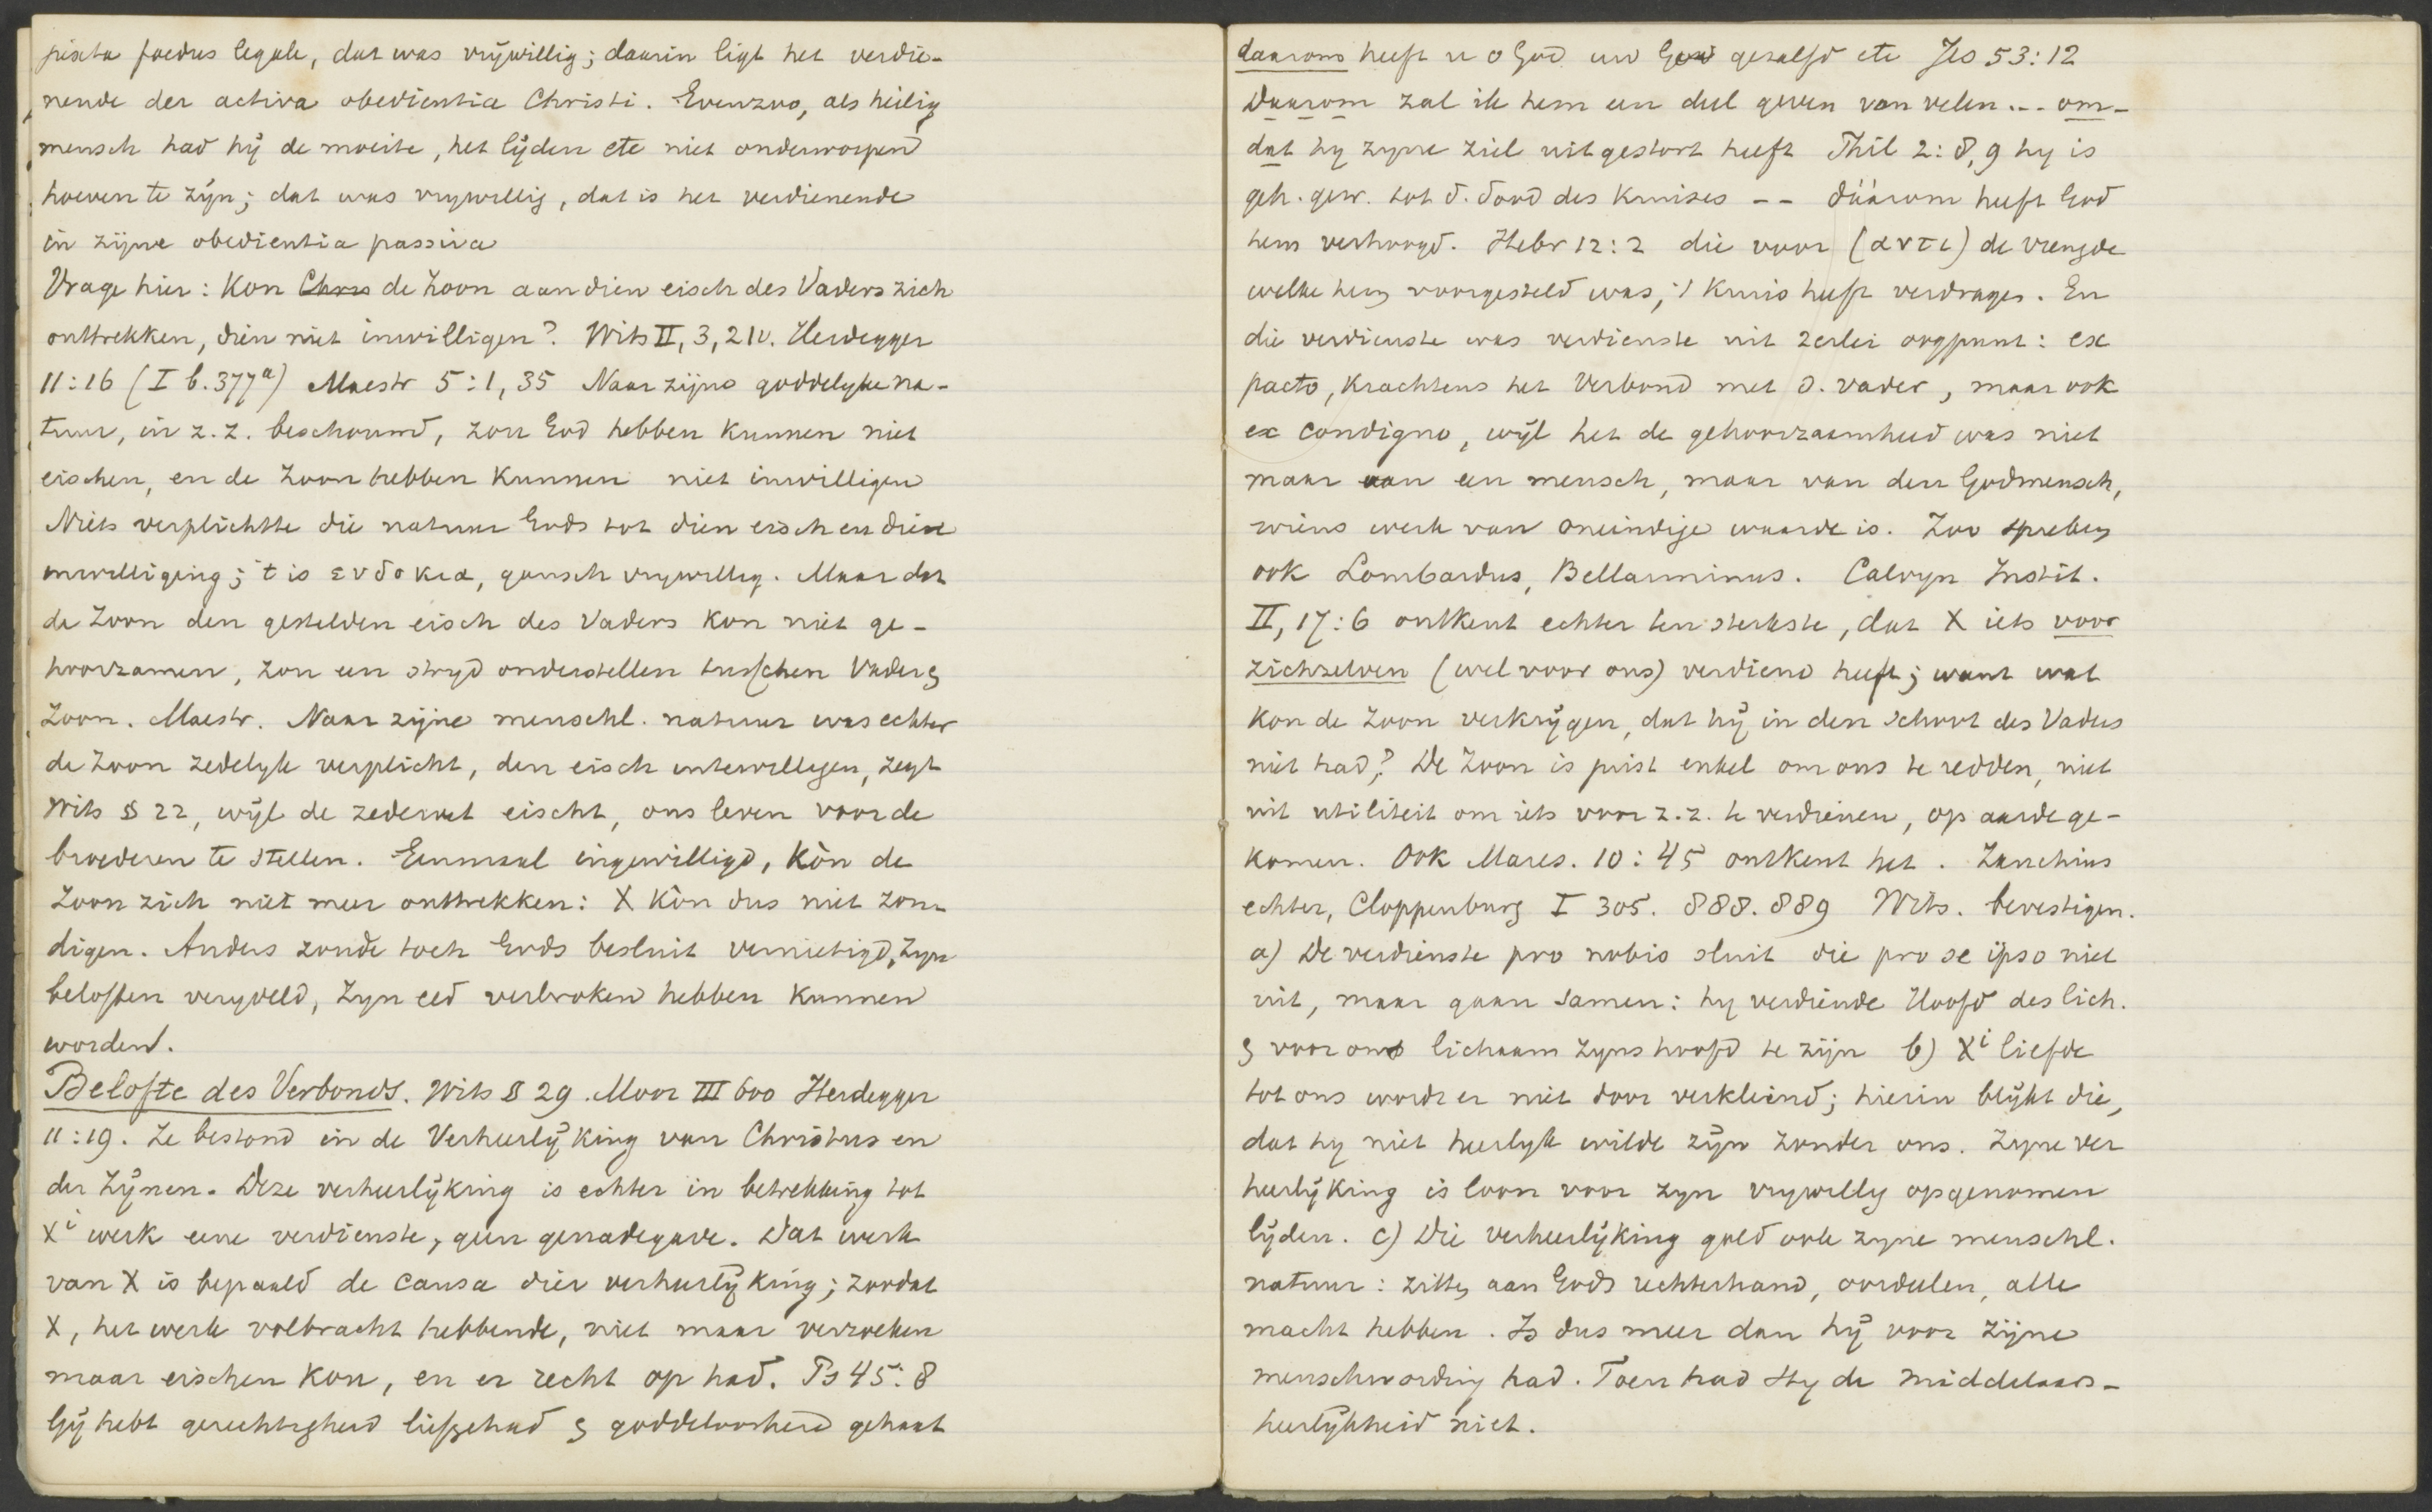 juxta foedus legale, dat was vrijwillig; daarin ligt het verdie-
nende der activa obedientia Christi. Evenzoo, als heilig
mensch had hij de moeite, het lijden etc niet onderworpen
hoeven te zijn; dat was vrywillig, dat is het verdienende
in zijne obedientia passiva
Vrage hier: Kon Chris de Zoon aan dien eisch des Vaders zich
onttrekken, dien niet inwilligen? Wits II, 3, 21v. Heidegger
11:16 (I b. 377a) Maestr 5:1, 35 Naar zijne goddelyke na-
tuur, in z.z. beschouwd, zou God hebben kunnen niet
eischen, en de Zoon hebben kunnen niet inwilligen
Niets verplichtte die natuur Gods tot dien eisch en dien
inwilliging; 't is ευδοκια, gansch vrywillig. Maar dat
de Zoon den gestelden eisch des Vaders kon niet ge-
hoorzamen, zou een stryd onderstellen tusschen Vader &
Zoon. Maestr. Naar zijne menschl. natuur was echter
de Zoon zedelyk verplicht, den eisch intewilligen, zegt
Wits § 22, wijl de zedewet eischt, ons leven voor de
broederen te stellen. Eenmaal ingewilligd, kòn de
Zoon zich niet meer onttrekken: X kòn dus niet zon-
digen. Anders zoude toch Gods besluit vernietigd, zyn
beloften verydeld, zyn eed verbroken hebben kunnen
worden.
Belofte des Verbonds. Wits § 29. Moor III 600 Heidegger
11:19. Ze bestond in de Verheerlijking van Christus en
der Zijnen. Deze verheerlijking is echter in betrekking tot
Xi werk eene verdienste, geen genadegave. Dat werk
van X is bepaald de causa dier verheerlijking; zoodat
X, het werk volbracht hebbende, niet maar verzoeken
maar eischen kon, en er recht op had. Ps 45:8
Gij hebt gerechtigheid liefgehad & goddeloosheid gehaat
daarom heeft u o God uw God gezalfd etc Jes 53:12
Daarom zal ik hem een deel geven van velen... om-
dat hy zyne ziel uitgestort heeft Phil 2:8,9 hy is
geh. gew. tot d. dood des kruises -- dáárom heeft God
hem verhoogd. Hebr 12:2 die voor (αντι) de vreugde
welke hem voorgesteld was, 't kruis heeft verdragen. En
die verdienste was verdienste uit 2erlei oogpunt: ex
pacto, krachtens het Verbond met d. vader, maar ook
ex condigno, wijl het de gehoorzaamheid was niet
maar van een mensch, maar van den Godmensch,
wiens werk van oneindige waarde is. Zoo spreken
ook Lombardus, Bellarminus. Calvyn Instit.
II, 17:6 ontkent echter ten sterkste, dat X iets voor
zichzelven (wel voor ons) verdiend heeft; want wat
kon de Zoon verkrijgen, dat hij in den schoot des Vaders
niet had? De Zoon is juist enkel om ons te redden, niet
uit utiliteit om iets voor z.z. te verdienen, op aarde ge-
komen. Ook Mares. 10:45 ontkent het. Zanchius
echter, Cloppenburg I 305. 888. 889 Wits. bevestigen.
a) De verdienste pro nobis sluit die pro se ipso niet
uit, maar gaan samen: hy verdiende Hoofd des lich.
& voor ons lichaam zyns hoofd te zijn b) Xi liefde
tot ons wordt er niet door verkleind; hierin blijkt die,
dat hy niet heerlyk wilde zijn zonder ons. Zyne ver
heerlijking is loon voor zyn vrywillig opgenomen
lijden. c) Die verheerlijking gold ook zyne menschl.
natuur: zitten aan Gods rechterhand, oordeelen, alle
macht hebben. Is dus meer dan hij voor zijne
menschwording had. Toen had Hy de middelaars-
heerlijkheid niet.